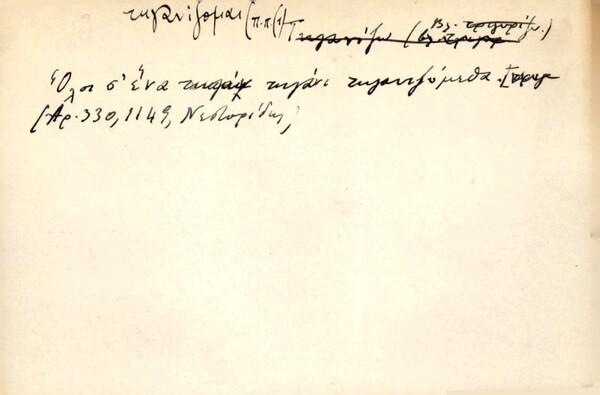 τηγανίζομαι (π.π.(1) Τηγανίζω (βλ. τριγυρίζω.)
Όλοι σ' ένα τηγάνι τηγανιζόμεθα.
(Αρ. 330, 1149, Νεστορίδης)